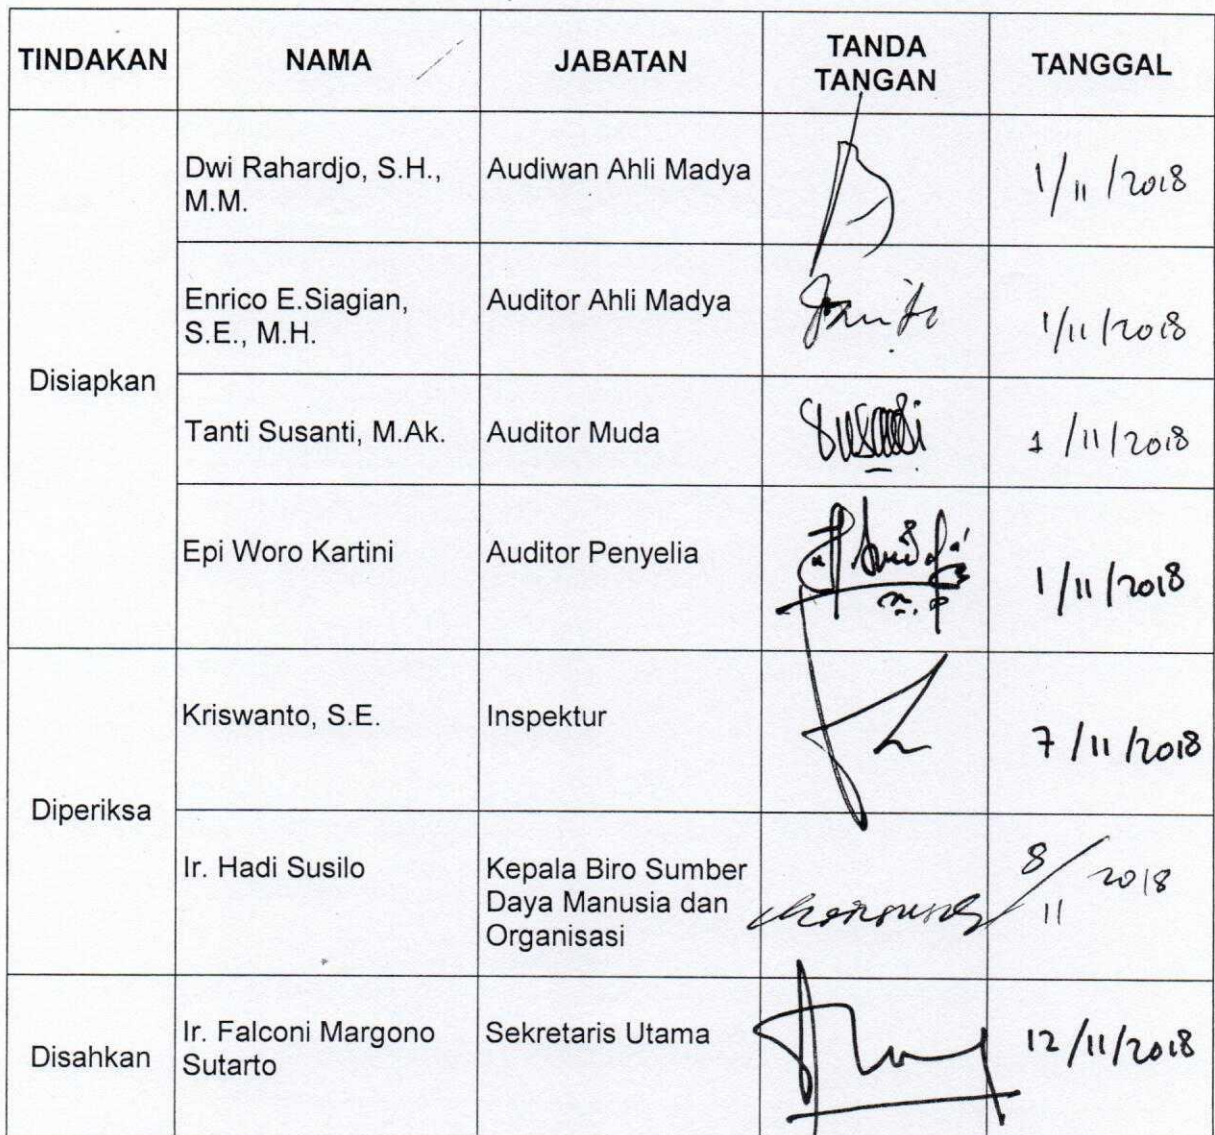 TINDAKAN
NAMA
JABATAN
TANDA
TANGAN
TANGGAL
Disiapkan
Dwi Rahardjo, S.H.,
M.M.
Audiwan Ahli Madya
1/11/2018
Enrico E.Siagian,
S.E., M.H.
Auditor Ahli Madya
1/11/2018
Tanti Susanti, M.Ak.
Auditor Muda
1/11/2018
Epi Woro Kartini
Auditor Penyelia
1/11/2018
Diperiksa
Kriswanto, S.E.
Inspektur
7/11/2018
Ir. Hadi Susilo
Kepala Biro Sumber
Daya Manusia dan
Organisasi
8/11 2018
Disahkan
Ir. Falconi Margono
Sutarto
Sekretaris Utama
12/11/2018